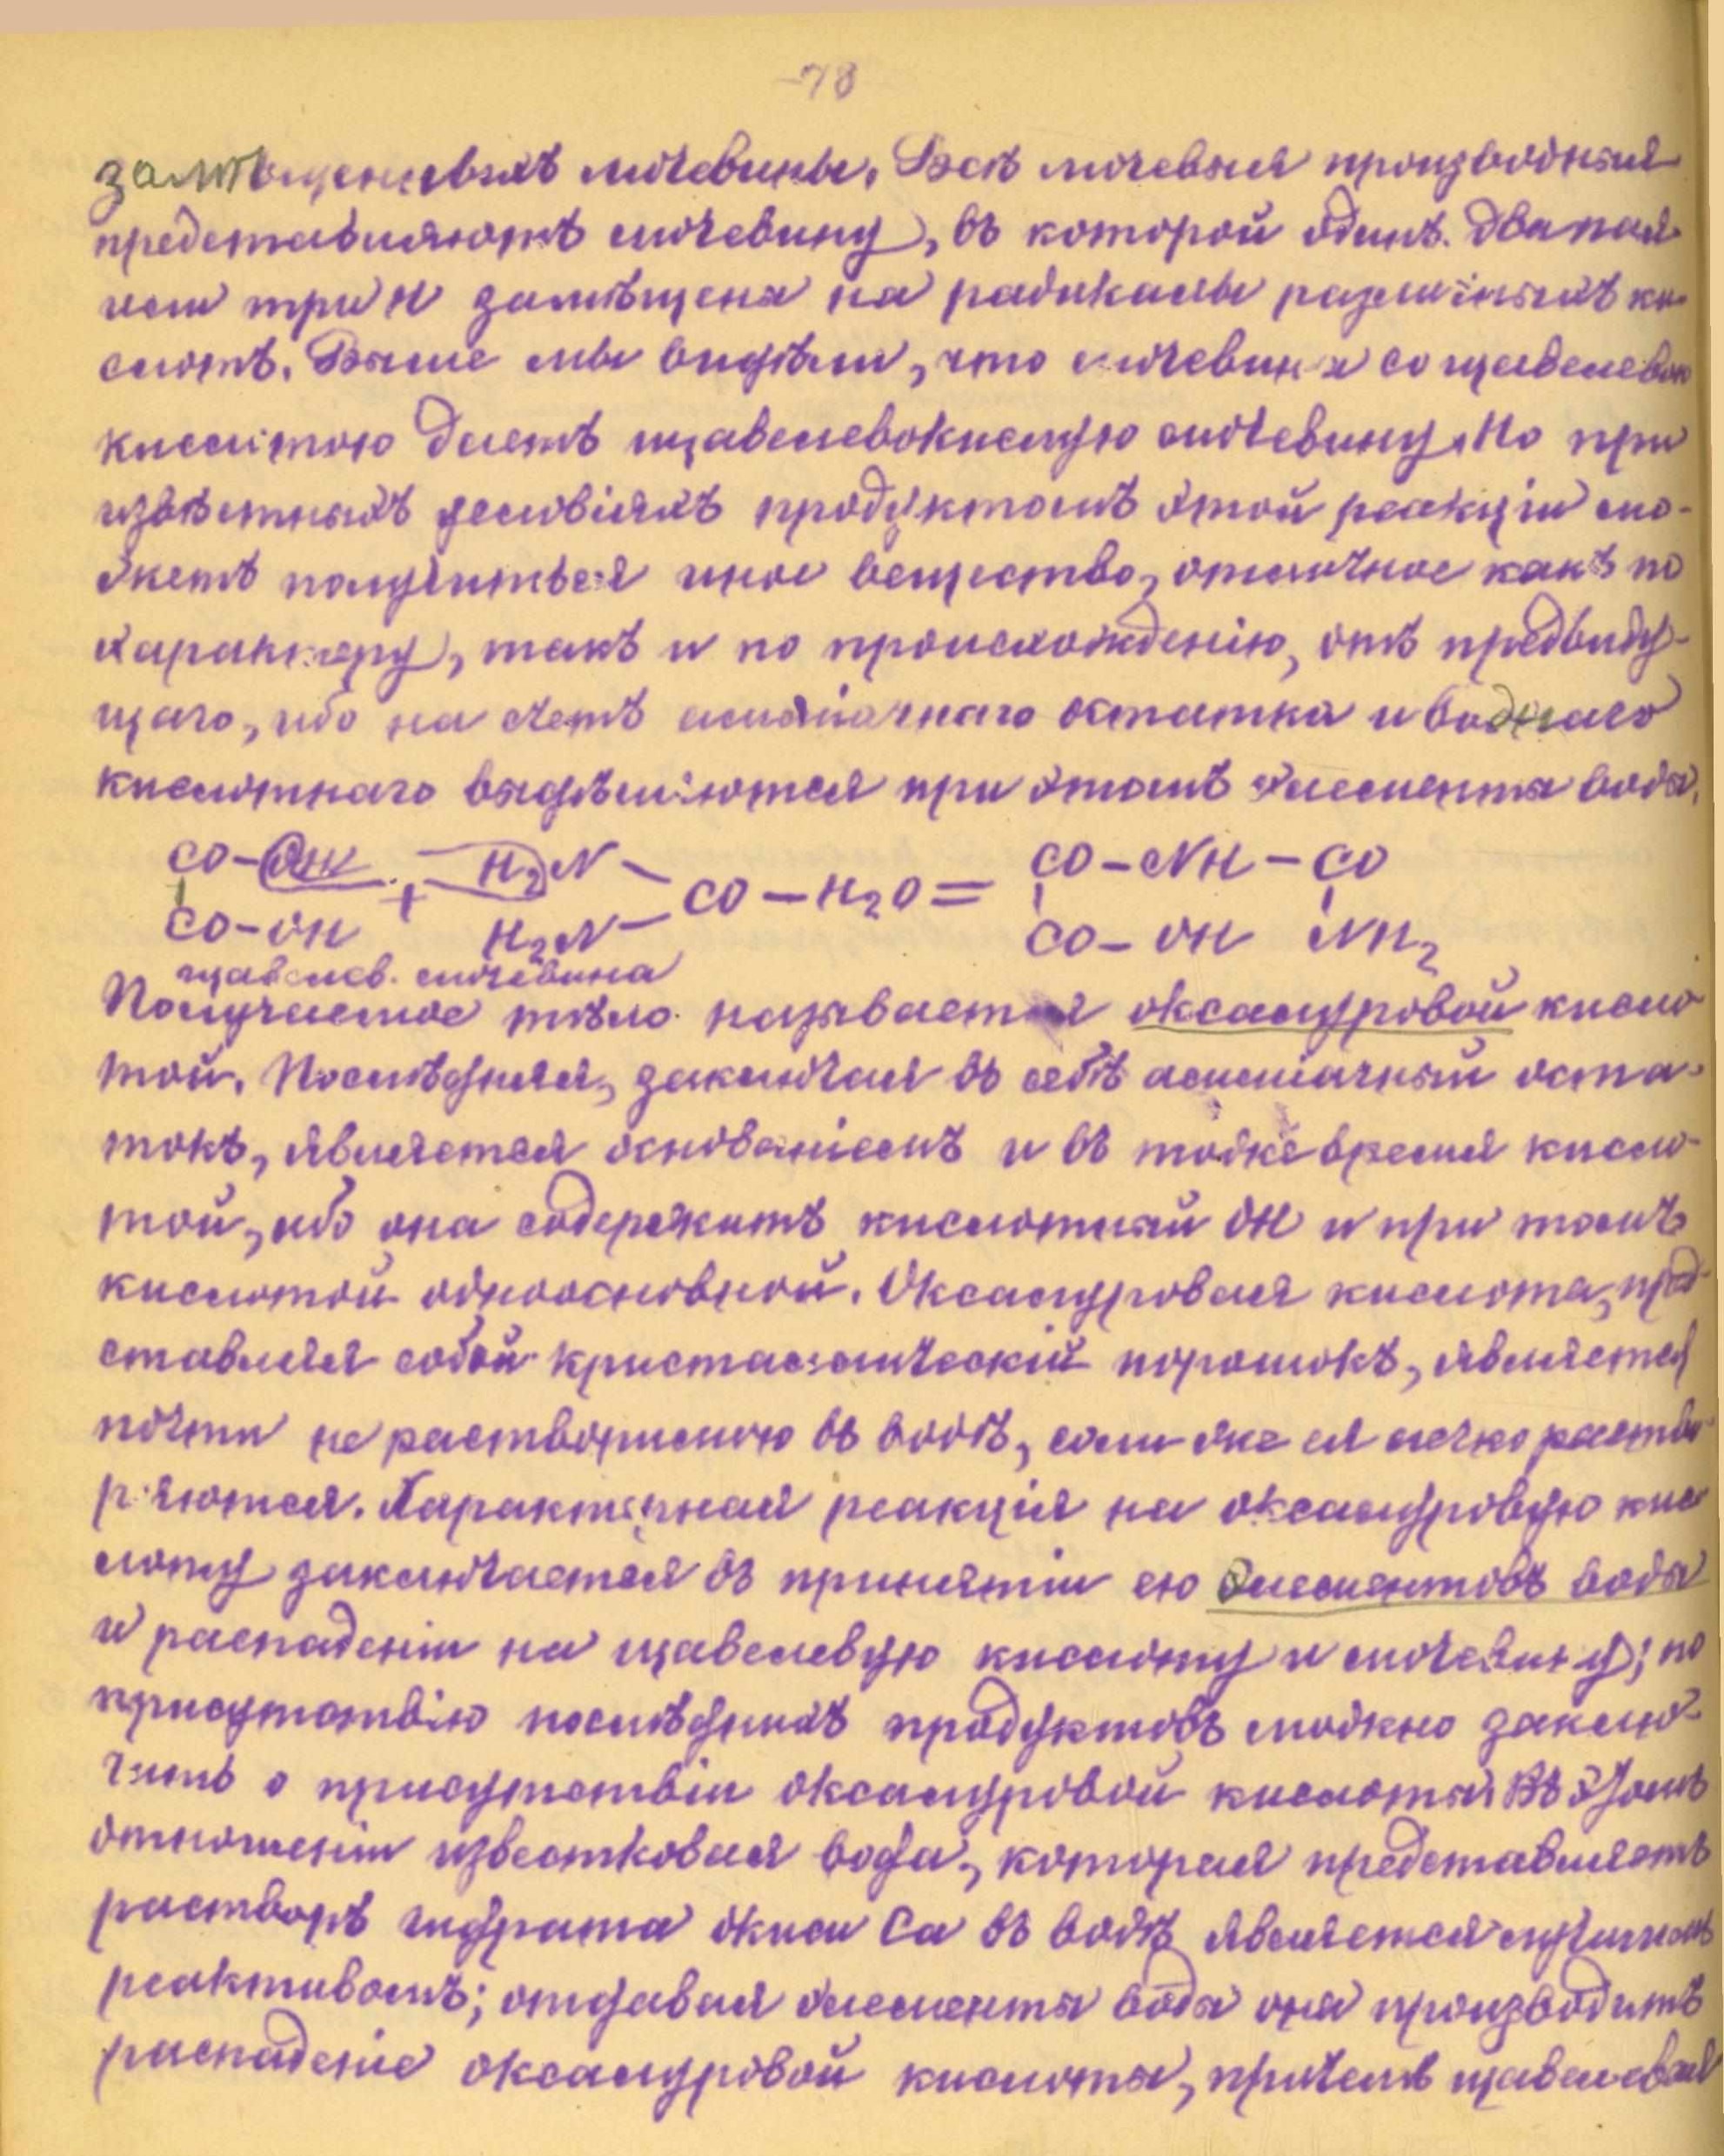 -78
замѣщенныхъ мочевины. Всѣ мочевыя производныя
представляютъ мочевину, въ которой одинъ. два паи
или три H замѣщена на радикалы различныхъ ки-
слотъ. Выше мы видѣли, что мочевина со щавелевою
кислотою даетъ щавелевокислую мочевину. Но при
извѣстныхъ условіяхъ продуктомъ этой реакціи мо-
жетъ получиться иное вещество, отличное какъ по
характеру, такъ и по происхожденію, отъ предъиду-
щаго, ибо на счетъ амміачнаго остатка и воднаго
кислотнаго выдѣляются при этомъ элементы воды.
CO-OH + H2N CO - H2O = CO - NH - CO
CO-OH H2N CO - OH NH2
щавелев. мочевина
Получаемое тѣло называется оксалуровой кисло
той. Послѣдняя, заключая въ себѣ амміачный оста-
токъ, является основаніемъ и въ тоже время кисло-
той, ибо она содержитъ кислотный OH и при томъ
кислотой одноосновной. Оксалуровая кислота, пред-
ставляя собой кристаллическій порошокъ, является
почти не растворимою въ водѣ, соли же ея легко раство-
ряются. Характерная реакція на оксалуровую кис
лоту заключается въ принятіи ею элементовъ воды
и распаденіи на щавелевую кислоту и мочевину; по
присутствію послѣднихъ продуктовъ можно заклю-
чить о присутствіи оксалуровой кислоты. Въ этомъ
отношеніи известковая вода, которая представляетъ
растворъ гидрата окиси Ca въ водѣ является лучшимъ
реактивомъ; отдавая элементы воды она производитъ
распаденіе оксалуровой кислоты, причемъ щавелевая